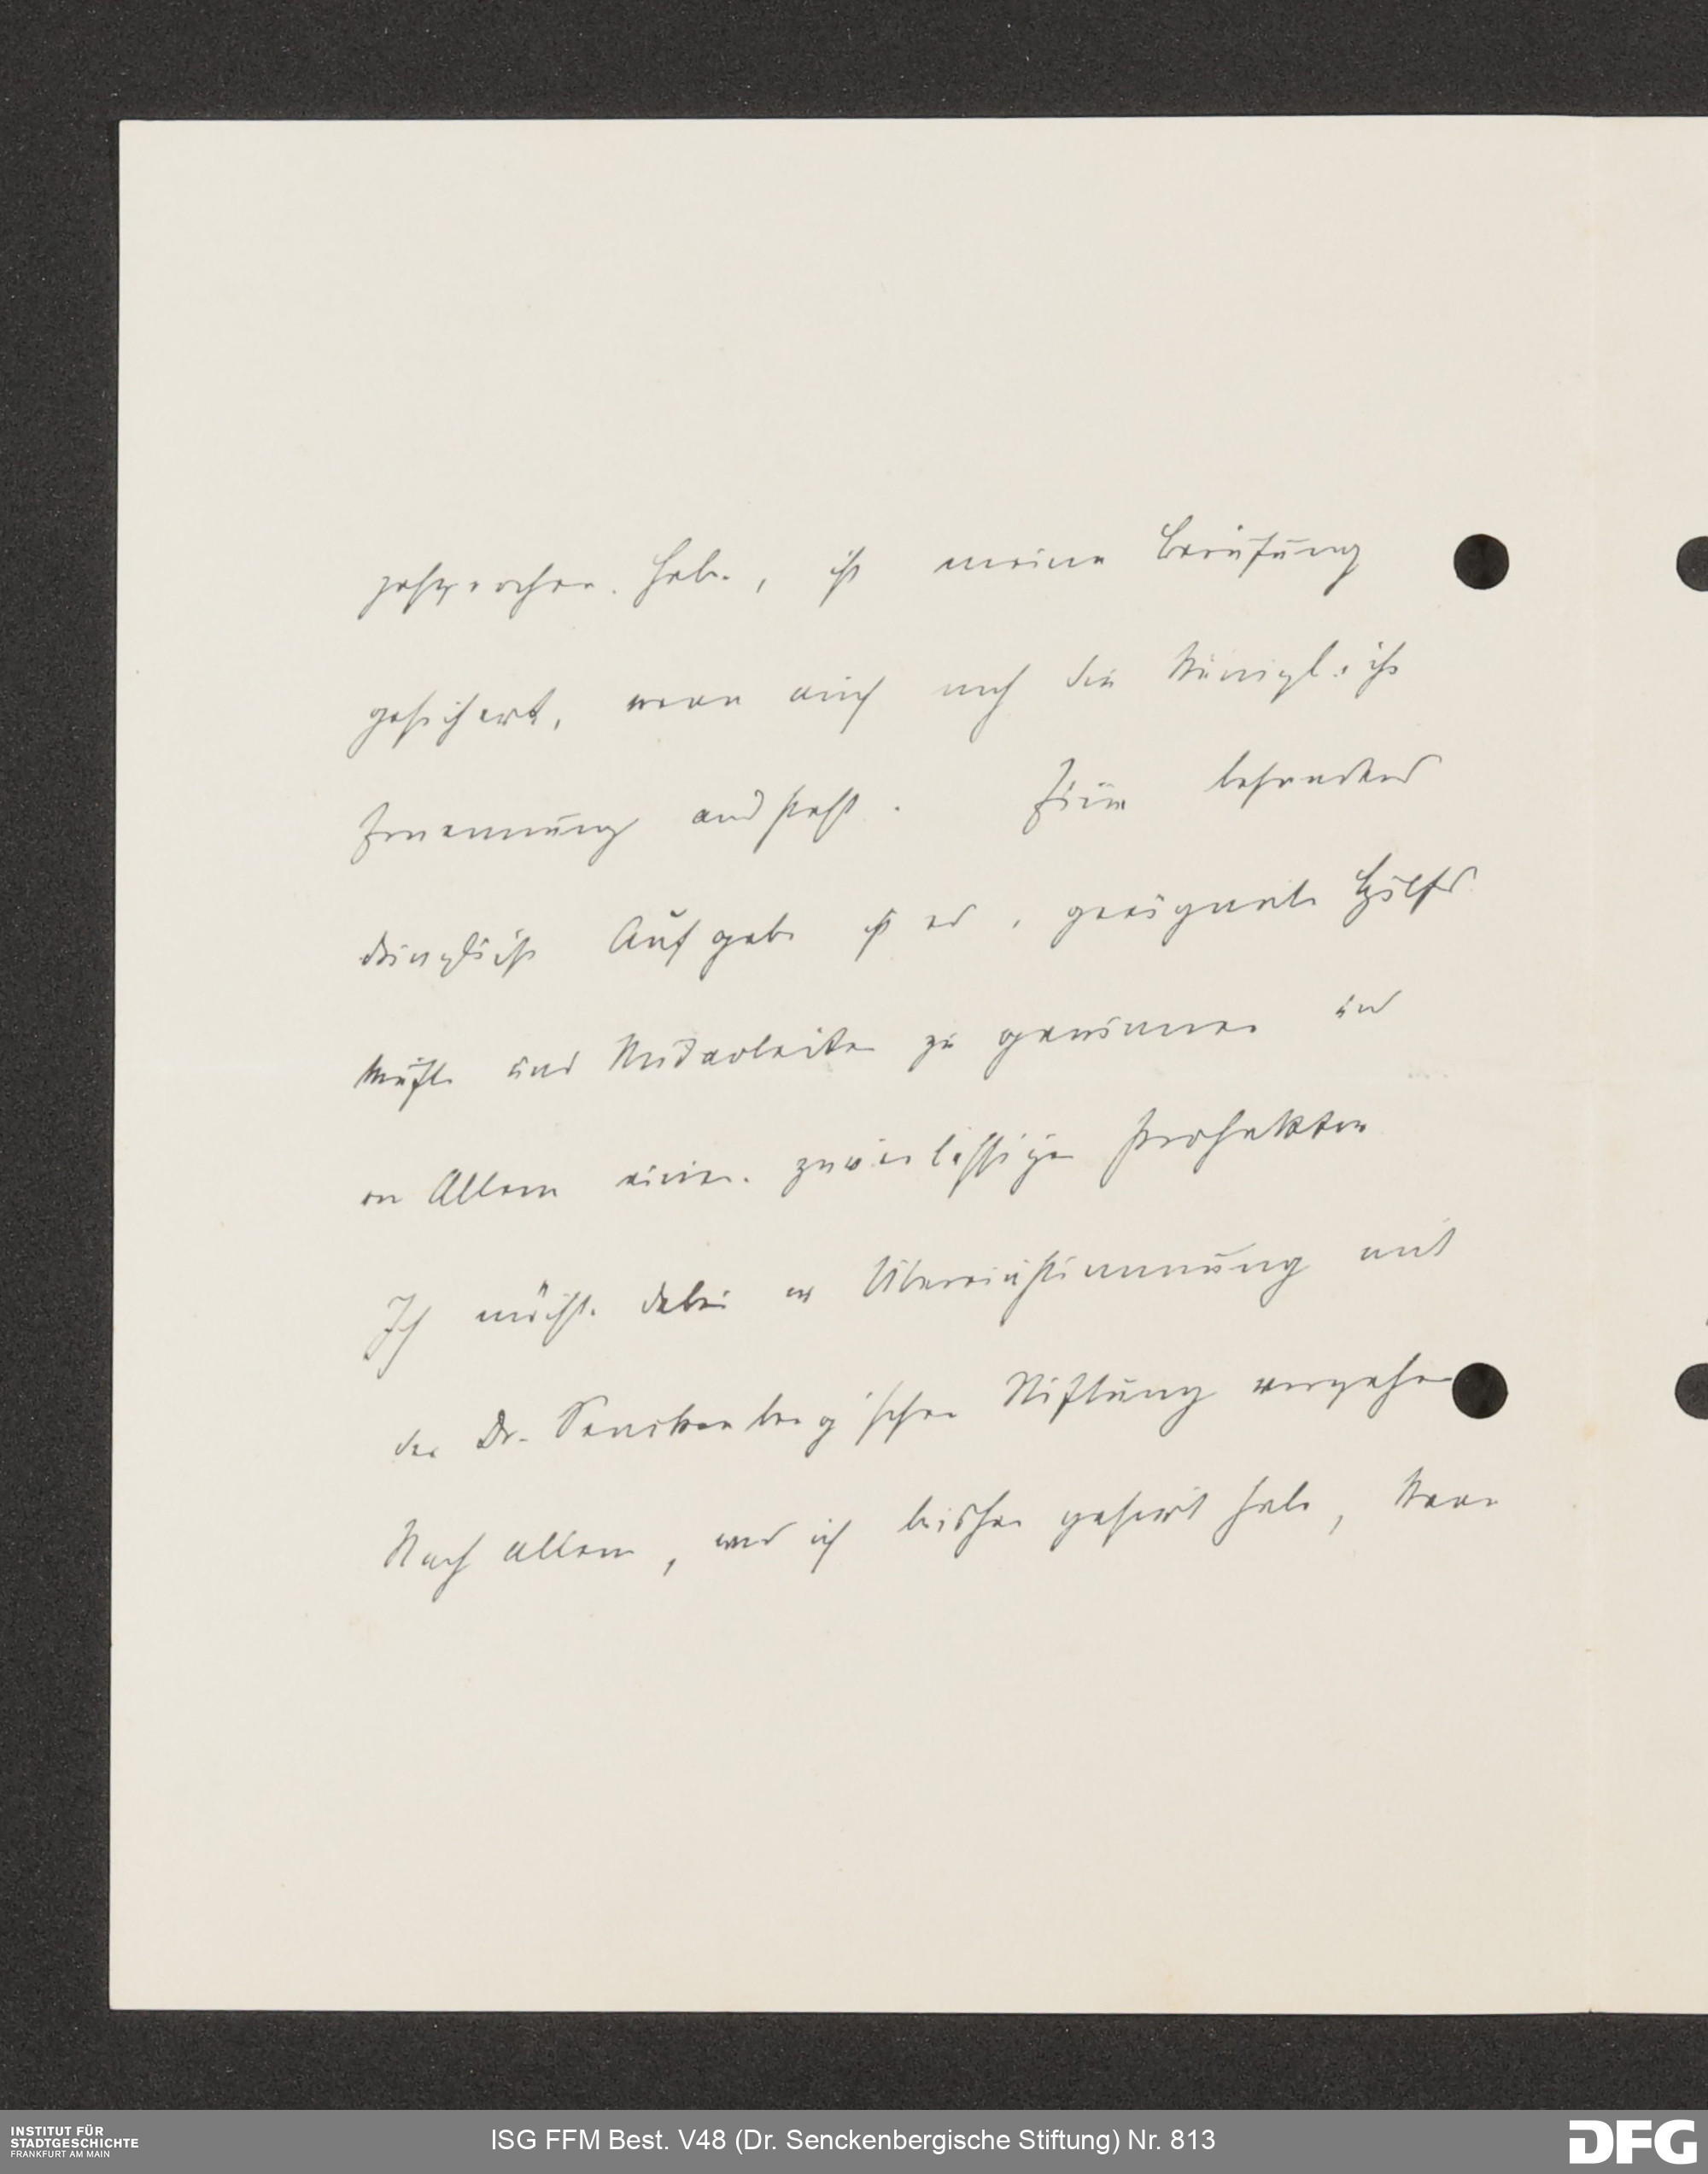 gesprochen habe, ist meine Berufung
gesichert, wenn auch noch die Königliche
Ernennung aussteht. Eine besonders
dringliche Aufgabe ist es, geeignete Hülfs
kräfte und Mitarbeiter zu gewinnen und
vor Allem einen zuverlässigen Prosektor
Ich möchte dabei in Übereinstimmung mit
der Dr. Senckenberg'schen Stiftung vorgehen
Nach allem, was ich bisher gehört habe, kann
INSTITUT FÜR
STADTGESCHICHTE
FRANKFURT AM MAIN
ISG FFM Best. V48 (Dr. Senckenbergische Stiftung) Nr. 813
DFG